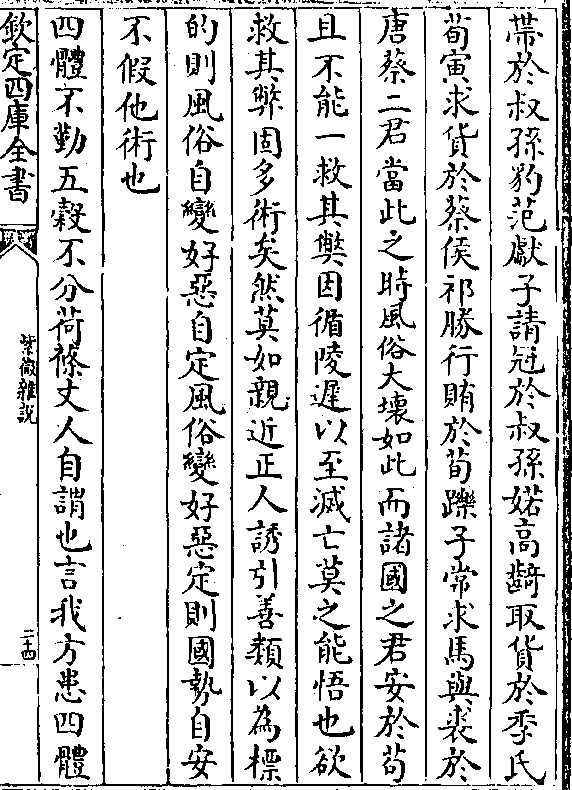 帶於叔孫豹范獻子請冠於叔孫婼高齮取貨於季氏
荀寅求貨於蔡侯祁勝行賄於荀躒子常求馬與裘於
唐蔡二君當此之時風俗大壞如此而諸國之君安於苟
且不能一救其弊因循陵遲以至滅亡莫之能悟也欲
救其弊固多術矣然莫如親近正人誘引善類以為標
的則風俗自變好惡自定風俗變好惡定則國勢自安
不假他術也
四體不勤五穀不分荷蓧丈人自謂也言我方患四體
欽定四庫全書
紫微雜說
二十四